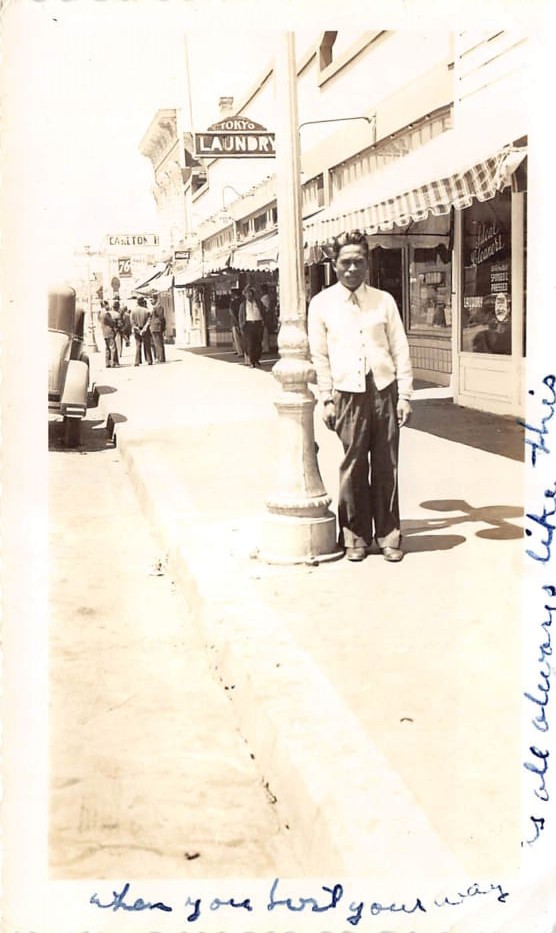 TOKYO
LAUNDRY
CARLTON H
76
Ideal
Cleaners
SPONGED &
PRESSED
LAUNDRY
when you lost your way
is all always like this